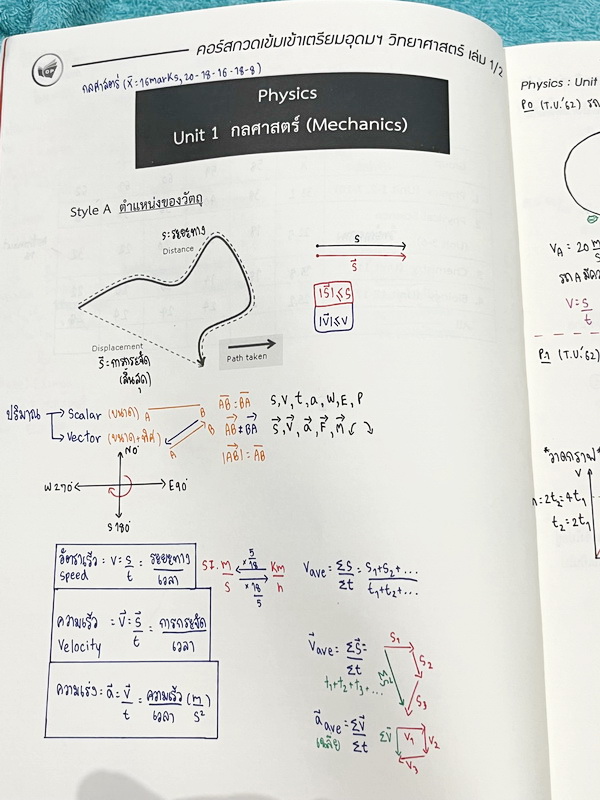 คอร์สกวดเข้มเข้าเตรียมอุดมฯ วิทยาศาสตร์ เล่ม 1/2
กลศาสตร์ (x̄ = 16marks, 20-18-16-18-8)
Physics
Unit 1 กลศาสตร์ (Mechanics)
Style A ตำแหน่งของวัตถุ
s = ระยะทาง
Distance
s
s⃗
|s⃗| ≤ s
|v⃗| ≤ v
Displacement
s⃗ = การกระจัด
(สั้นสุด)
Path taken
ปริมาณ → Scalar (ขนาด) A B AB = BA s, v, t, a, W, E, P
→ Vector (ขนาด+ทิศ) A B AB ≠ BA s⃗, v⃗, a⃗, F⃗, M⃗
|AB| = AB
N0°
W270° E90°
S180°
อัตราเร็ว : v = s/t = ระยะทาง/เวลา
Speed
SI. m/s ×5/18 ×18/5 km/h
Vave = Σs/Σt = s1+s2+.../t1+t2+...
ความเร็ว = v⃗ = s⃗/t = การกระจัด/เวลา
Velocity
v⃗ave = Σs⃗/Σt
t1+t2+t3+...
s1
s2
s3
Σs⃗
ความเร่ง = a⃗ = v⃗/t = ความเร็ว/เวลา (m/s²)
a⃗ave = Σv⃗/Σt
เฉลี่ย
Σv⃗
v1
v2
v3
Physics : Unit
P0 (T.U.'62)
VA = 20 m/s
V = s/t
P1 (T.U.'62)
*วาดกราฟ*
V
=2t2=4t1
t2=2t1